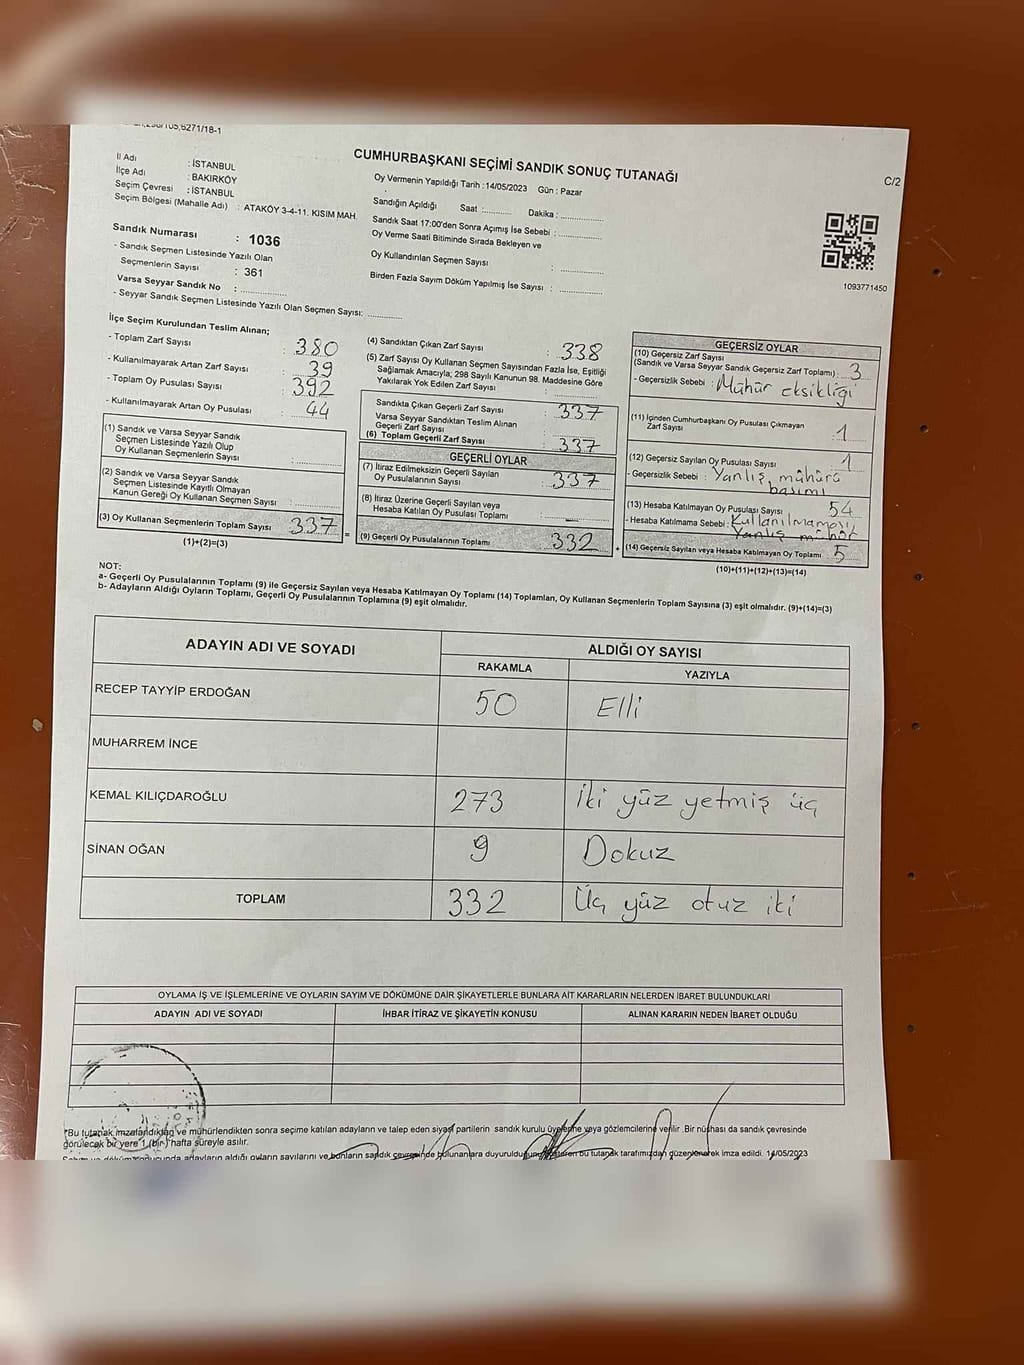 CUMHURBAŞKANI SEÇİMİ SANDIK SONUÇ TUTANAĞI
C/2
İl Adı : İSTANBUL
İlçe Adı : BAKIRKÖY
Seçim Çevresi : İSTANBUL
Seçim Bölgesi (Mahalle Adı) : ATAKÖY 3-4-11. KISIM MAH.
Sandık Numarası : 1036
- Sandık Seçmen Listesinde Yazılı Olan
Seçmenlerin Sayısı : 361
Varsa Seyyar Sandık No : ................
- Seyyar Sandık Seçmen Listesinde Yazılı Olan Seçmen Sayısı: ............
Oy Vermenin Yapıldığı Tarih : 14/05/2023 Gün : Pazar
Sandığın Açıldığı Saat :.......... Dakika : ...............
Sandık Saat 17:00'den Sonra Açımış İse Sebebi : ...............
Oy Verme Saati Bitiminde Sırada Bekleyen ve
Oy Kullandırılan Seçmen Sayısı : ...............
Birden Fazla Sayım Döküm Yapılmış İse Sayısı : ...............
1093771450
İlçe Seçim Kurulundan Teslim Alınan;
- Toplam Zarf Sayısı : 380
- Kullanılmayarak Artan Zarf Sayısı : 39
- Toplam Oy Pusulası Sayısı : 392
- Kullanılmayarak Artan Oy Pusulası : 44
(1) Sandık ve Varsa Seyyar Sandık
Seçmen Listesinde Yazılı Olup
Oy Kullanan Seçmenlerin Sayısı : ...............
(2) Sandık ve Varsa Seyyar Sandık
Seçmen Listesinde Kayıtlı Olmayan
Kanun Gereği Oy Kullanan Seçmen Sayısı : ...............
(3) Oy Kullanan Seçmenlerin Toplam Sayısı 337
(1)+(2)=(3)
=
(4) Sandıktan Çıkan Zarf Sayısı : 338
(5) Zarf Sayısı Oy Kullanan Seçmen Sayısından Fazla İse, Eşitliği
Sağlamak Amacıyla; 298 Sayılı Kanunun 98. Maddesine Göre
Yakılarak Yok Edilen Zarf Sayısı : ...............
Sandıkta Çıkan Geçerli Zarf Sayısı : 337
Varsa Seyyar Sandıktan Teslim Alınan
Geçerli Zarf Sayısı : ...............
(6) Toplam Geçerli Zarf Sayısı : 337
GEÇERLİ OYLAR
(7) İtiraz Edilmeksizin Geçerli Sayılan
Oy Pusulalarının Sayısı : 337
(8) İtiraz Üzerine Geçerli Sayılan veya
Hesaba Katılan Oy Pusulası Toplamı : —
(9) Geçerli Oy Pusulalarının Toplamı 332
+
GEÇERSİZ OYLAR
(10) Geçersiz Zarf Sayısı
(Sandık ve Varsa Seyyar Sandık Geçersiz Zarf Toplamı) : 3
- Geçersizlik Sebebi : Mühür eksikliği
(11) İçinden Cumhurbaşkanı Oy Pusulası Çıkmayan
Zarf Sayısı : 1
(12) Geçersiz Sayılan Oy Pusulası Sayısı : 1
- Geçersizlik Sebebi : Yanlış mühürü
basımı
(13) Hesaba Katılmayan Oy Pusulası Sayısı : 54
- Hesaba Katılmama Sebebi : Kullanılmaması
Yanlış mühür
(14) Geçersiz Sayılan veya Hesaba Katılmayan Oy Toplamı : 5
(10)+(11)+(12)+(13)=(14)
NOT:
a- Geçerli Oy Pusulalarının Toplamı (9) ile Geçersiz Sayılan veya Hesaba Katılmayan Oy Toplamı (14) Toplamları, Oy Kullanan Seçmenlerin Toplam Sayısına (3) eşit olmalıdır. (9)+(14)=(3)
b- Adayların Aldığı Oyların Toplamı, Geçerli Oy Pusulalarının Toplamına (9) eşit olmalıdır.
ADAYIN ADI VE SOYADI ALDIĞI OY SAYISI
RAKAMLA YAZIYLA
RECEP TAYYİP ERDOĞAN 50 Elli
MUHARREM İNCE
KEMAL KILIÇDAROĞLU 273 İki yüz yetmiş üç
SİNAN OĞAN 9 Dokuz
TOPLAM 332 Üç yüz otuz iki
OYLAMA İŞ VE İŞLEMLERİNE VE OYLARIN SAYIM VE DÖKÜMÜNE DAİR ŞİKAYETLERLE BUNLARA AİT KARARLARIN NELERDEN İBARET BULUNDUKLARI
ADAYIN ADI VE SOYADI İHBAR İTİRAZ VE ŞİKAYETİN KONUSU ALINAN KARARIN NEDEN İBARET OLDUĞU
*Bu tutanak imzalandıktan ve mühürlendikten sonra seçime katılan adayların ve talep eden siyasi partilerin sandık kurulu üyelerine veya gözlemcilerine verilir .Bir nüshası da sandık çevresinde
görülecek bir yere 1 (bir) hafta süreyle asılır.
adayların aldığı oyların sayılarını ve bunların sandık çevresinde bulunanlara duyurulduğunu gösteren bu tutanak tarafımızdan düzenlenerek imza edildi. 14/05/2023